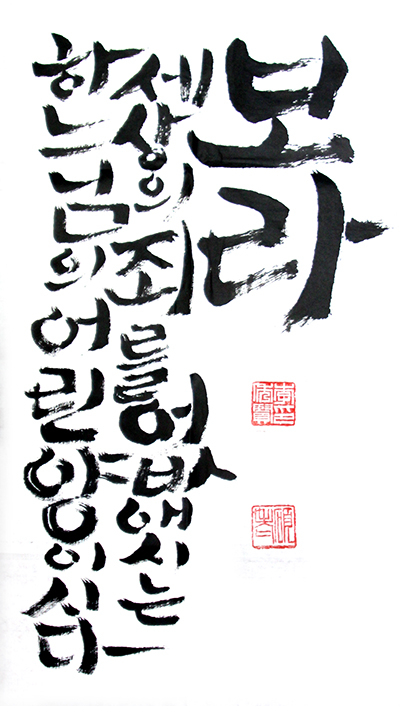 보라
세상의 죄를 없애시는
하느님의 어린양이시다